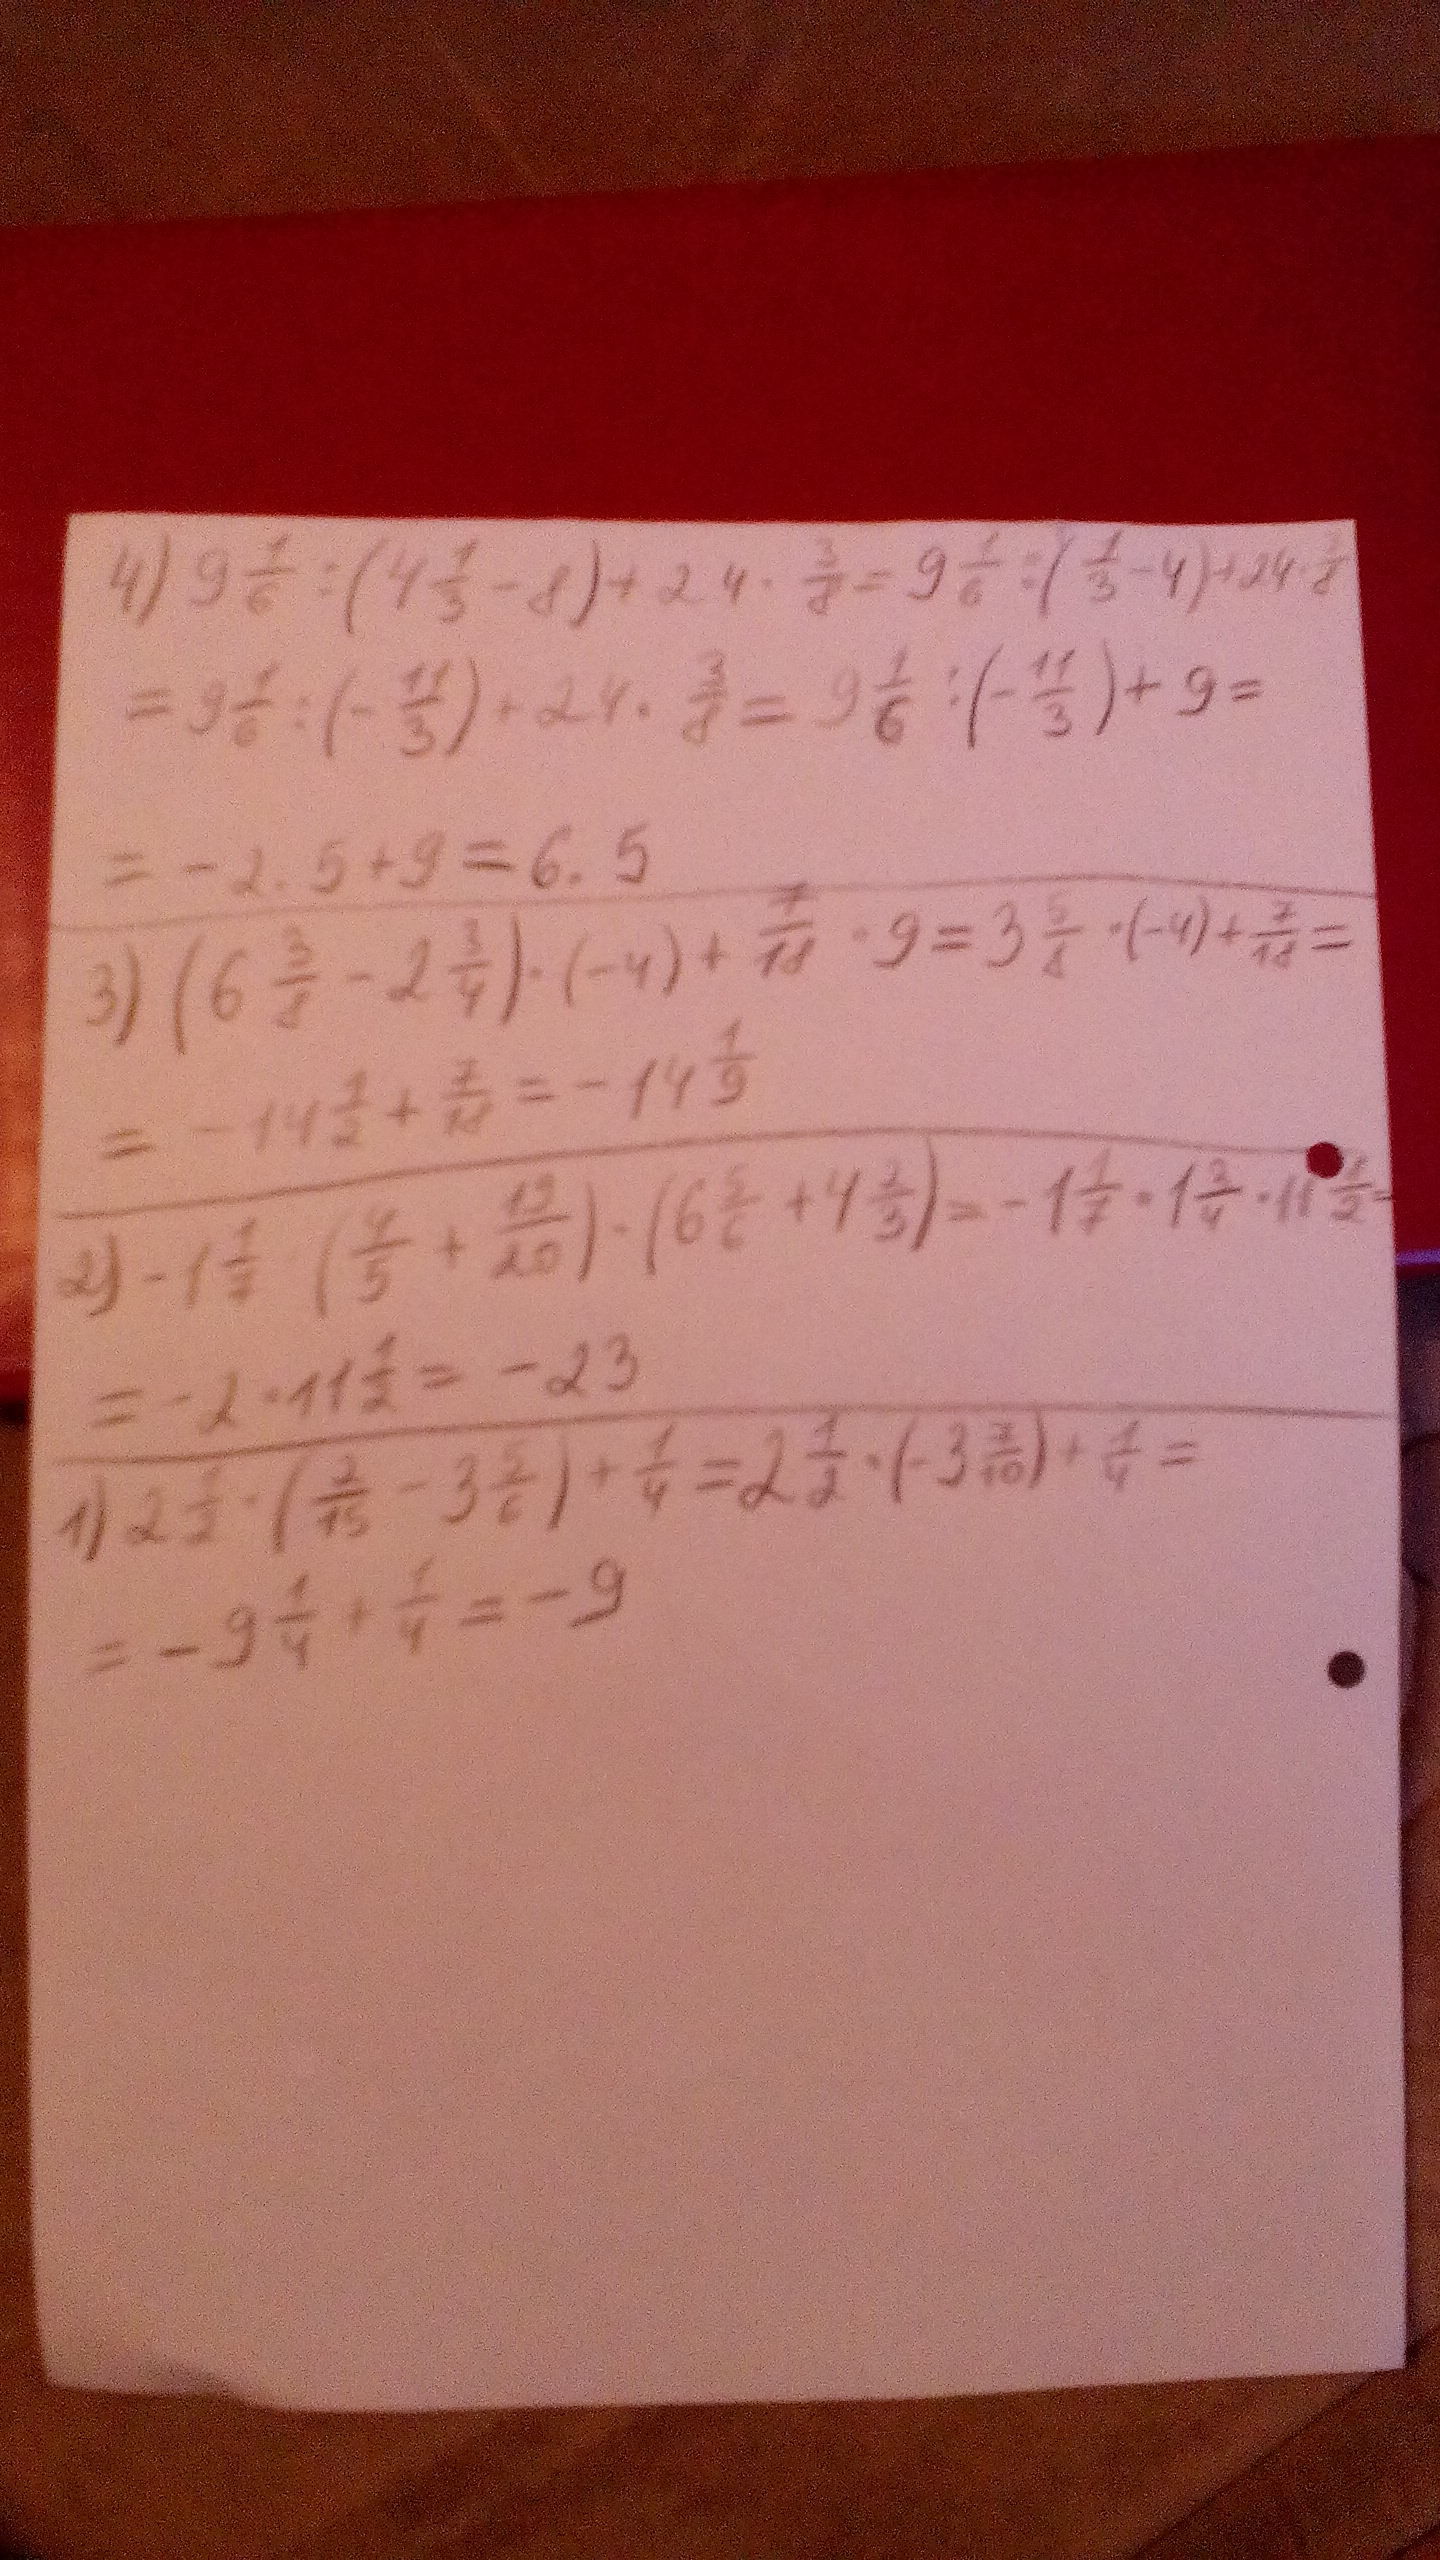 4) 9 1/6 : (4 1/3 - 8) + 24 · 3/8 = 9 1/6 : (1/3 - 4) + 24 · 3/8
= 9 1/6 : (- 11/3) + 24 · 3/8 = 9 1/6 : (- 11/3) + 9 =
= - 2.5 + 9 = 6.5
3) (6 3/8 - 2 3/4) · (-4) + 7/18 · 9 = 3 5/8 · (-4) + 7/18 =
= - 14 1/2 + 7/18 = - 14 1/9
2) - 1 1/7 (4/5 + 19/20) · (6 5/6 + 4 2/3) = - 1 1/7 · 1 3/4 · 11 1/2 =
= - 2 · 11 1/2 = - 23
1) 2 1/2 · (2/15 - 3 5/6) + 1/4 = 2 1/2 · (- 3 7/10) + 1/4 =
= - 9 1/4 + 1/4 = - 9